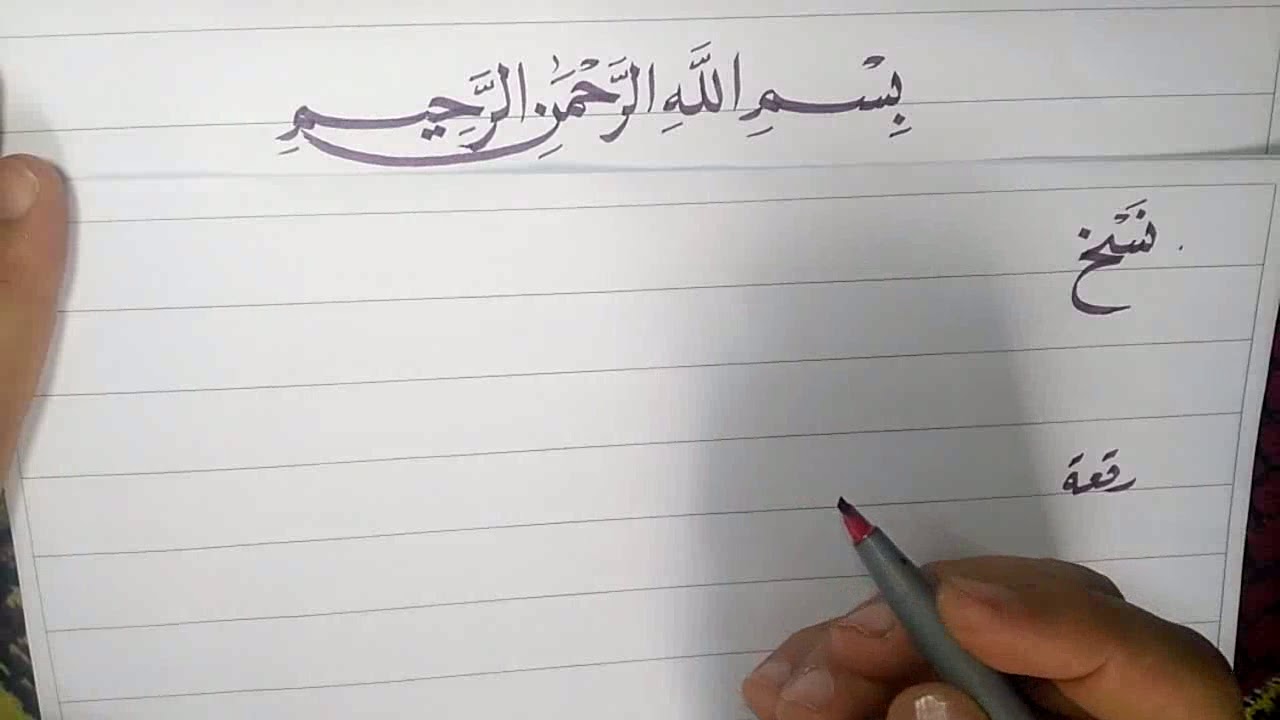 بِسْمِ اللَّهِ الرَّحْمَٰنِ الرَّحِيمِ
نَسْخ
رقعة